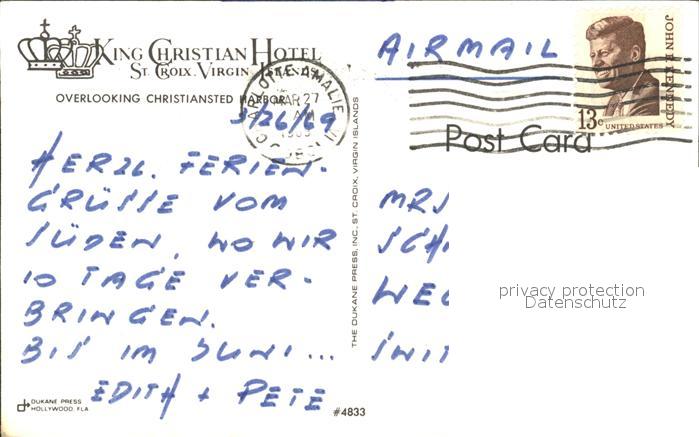 KING CHRISTIAN HOTEL
ST. CROIX, VIRGIN ISLANDS
OVERLOOKING CHRISTIANSTED HARBOR
3/26/69
HERZL. FERIEN-
GRÜSSE VOM
SÜDEN, WO WIR
10 TAGE VER-
BRINGEN.
BIS IM JUNI...
EDITH + PETE
DUKANE PRESS
HOLLYWOOD, FLA
#4833
THE DUKANE PRESS, INC., ST. CROIX, VIRGIN ISLANDS
AIRMAIL
CHARLOTTE AMALIE
MAR 27
AM
JOHN F. KENNEDY
13c
UNITED STATES
Post Card
MRS
SCH
WEG
SWIT
privacy protection
Datenschutz